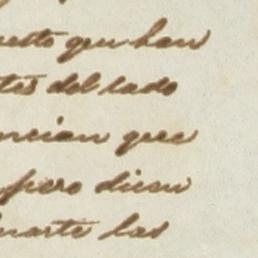 uesto que han
tes del lado
ncian que
pero dicen
uarte las